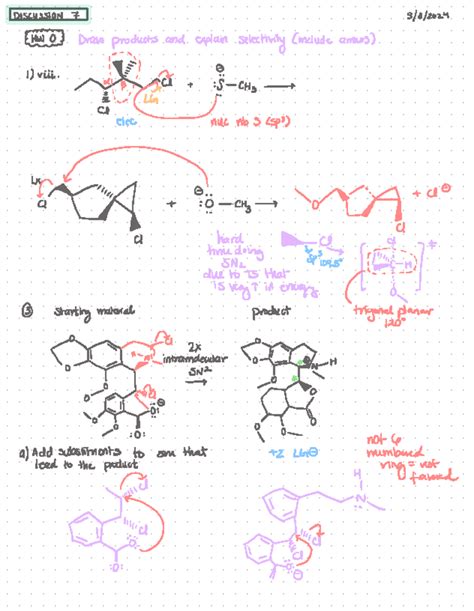 DISCUSSION 7
9/8/2024
HW 0 Draw products and explain selectivity (include arrows)
1) viii.
Cl
+
S
CH3
Cl
elec
nuc no 3 (sp3)
Cl
Cl
+
O
CH3
O
Cl
+ Cl
hard
time doing
SN2
due to TS that
is very ↑ in energy
Cl
sp3
109.5°
Cl
H
O
‡
trigonal planar
120°
③ starting material
product
2x
intramolecular
SN2
O
O
O
O
O
O
O
O
O
O
N
H
O
O
O
O
a) Add substituents to sm that
lead to the product
not 6
numbered
ring = not
favored
Cl
Cl
O
O
H
N
Cl
Cl
O